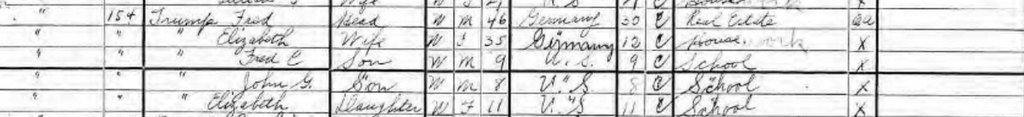 " 154 Trump Fred Head W M 46 Germany 30 C Real Estate
" " " Elizabeth Wife W F 35 Germany 12 C House work X
" " " Fred C Son W M 9 U. S. 9 C School X
" " " John G. Son W M 8 U. S. 8 C School X
" " " Elizabeth Daughter W F 11 U. S 11 C School X